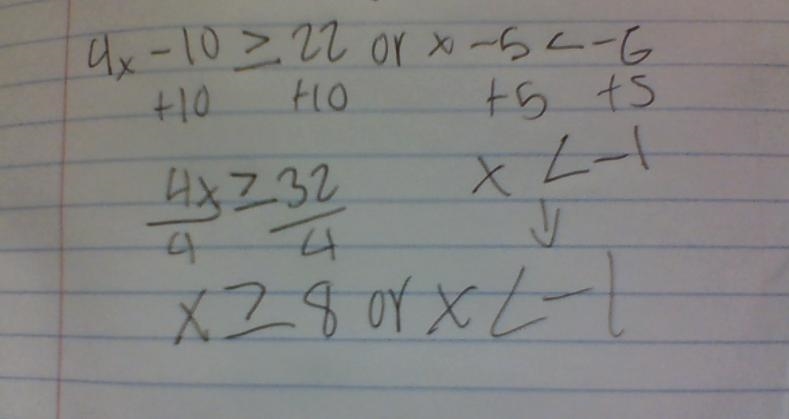 4x - 10 ≥ 22 or x - 5 < -6
+10 +10 +5 +5
4x ≥ 32 x < -1
4 4 ↓
x ≥ 8 or x < -1